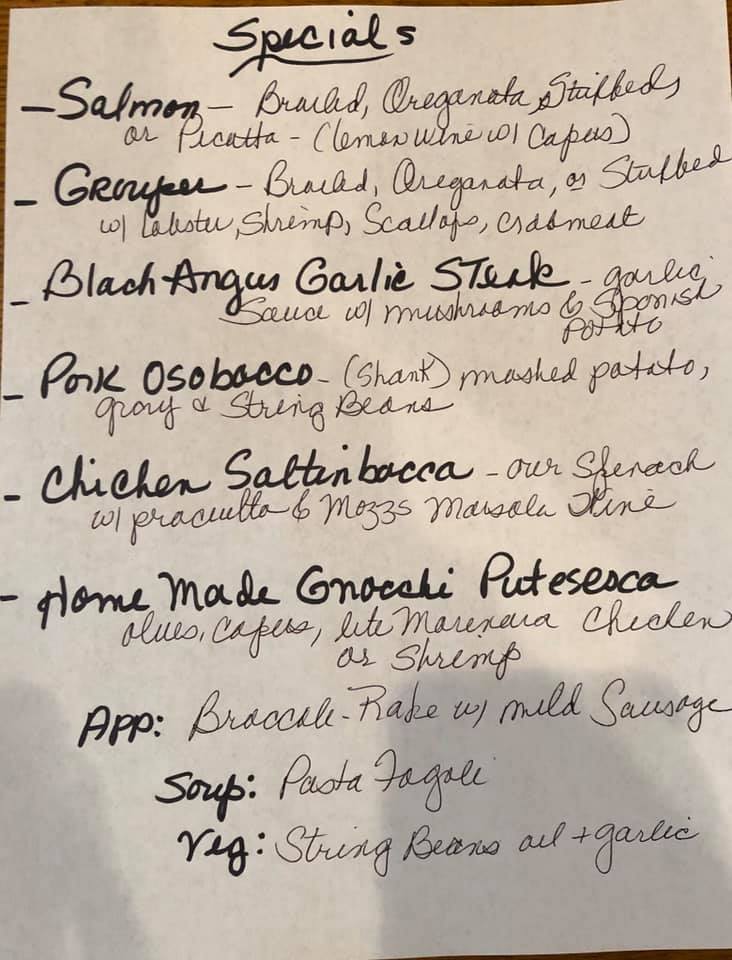 Specials
- Salmon - Broiled, Oreganata, Stuffed,
or Picatta - (lemon wine w/ Capers)
- Grouper - Broiled, Oreganata, or Stuffed
w/ Lobster, Shrimp, Scallops, crabmeat
- Black Angus Garlic Steak - garlic
Sauce w/ mushrooms & Spanish
Potato
- Pork Osobocco - (Shank) mashed potato,
gravy & String Beans
- Chicken Saltinbocca - our Spenach
w/ prociutto & Mozzs Marsala Wine
- Home Made Gnocchi Putesesca
olives, capers, lite Marenara Chicken
or Shrimp
App: Broccole-Rabe w/ mild Sausage
Soup: Pasta Fagoli
Veg: String Beans oil + garlic